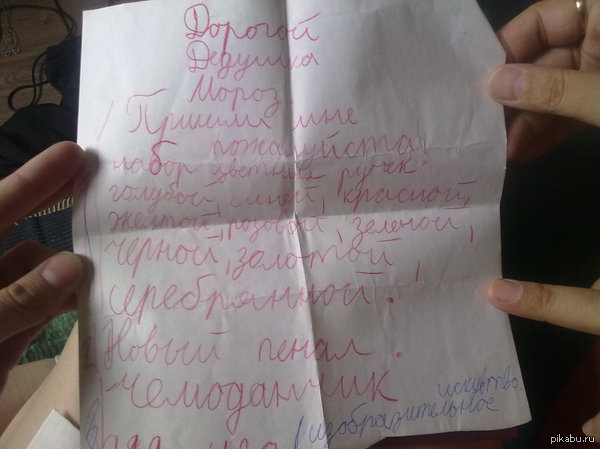 Дорогой
Дедушка
Мороз
1 Пришли мне
пожалуйста
набор цветных ручек
голубой, синей, красной,
желтой, розовый, зеленой,
черной, золотой,
серебрянной.
2) Новый пенал.
чемоданчик
искувтво
(изобразительное
pikabu.ru